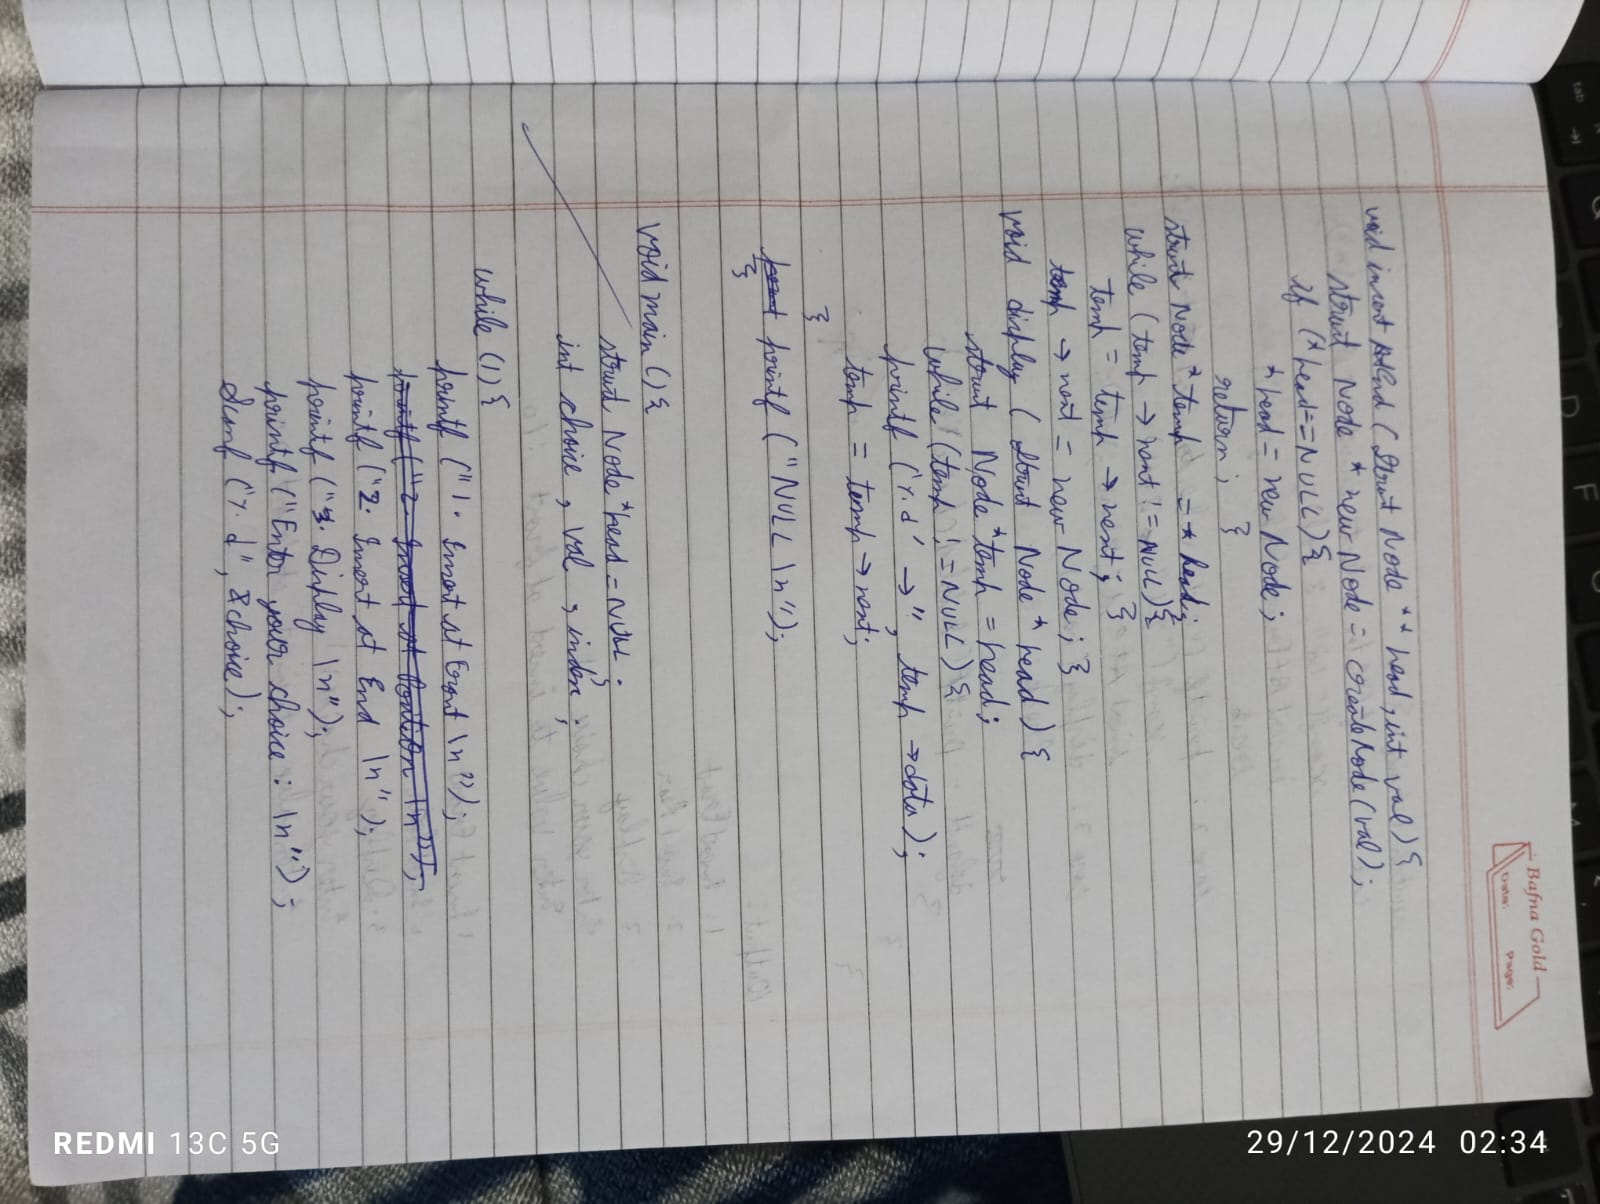 Bafna Gold
Date: Page:
void insertAtEnd (Struct Node ** head, int val) {
struct Node * newNode = createNode(val);
if (*head == NULL) {
*head = newNode;
return; }
struct Node * temp = * head;
while (temp → next != NULL) {
temp = temp → next; }
temp → next = new Node; }
void display (Struct Node * head) {
struct Node *temp = head;
while (temp != NULL) {
printf ("%d →", temp → data);
temp = temp → next;
}
printf ("NULL \n");
}
void main () {
struct Node *head = NULL;
int choice, val, index;
while (1) {
printf ("1. Insert at Front \n");
printf ("2. Insert at Position \n");
printf ("2. Insert at End \n");
printf ("3. Display \n");
printf ("Enter your choice: \n");
Scanf ("%d", &choice);
tab
Q
D
F
REDMI 13C 5G
29/12/2024 02:34